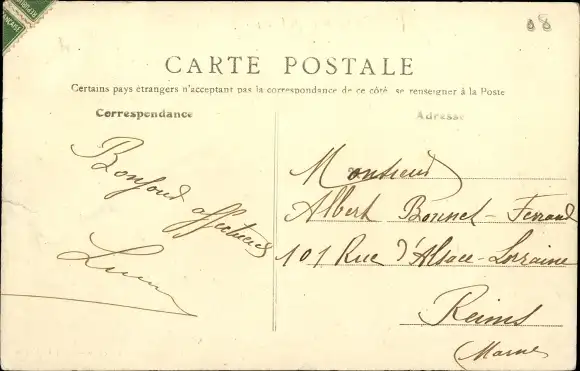 CARTE POSTALE
Certains pays étrangers n'acceptant pas la correspondance de ce côté, se renseigner à la Poste
Correspondance
Adresse
Bonjour affectueux
Monsieur
Albert Bonnet-Ferrand
101 Rue d'Alsace-Lorraine
Reims
Marne